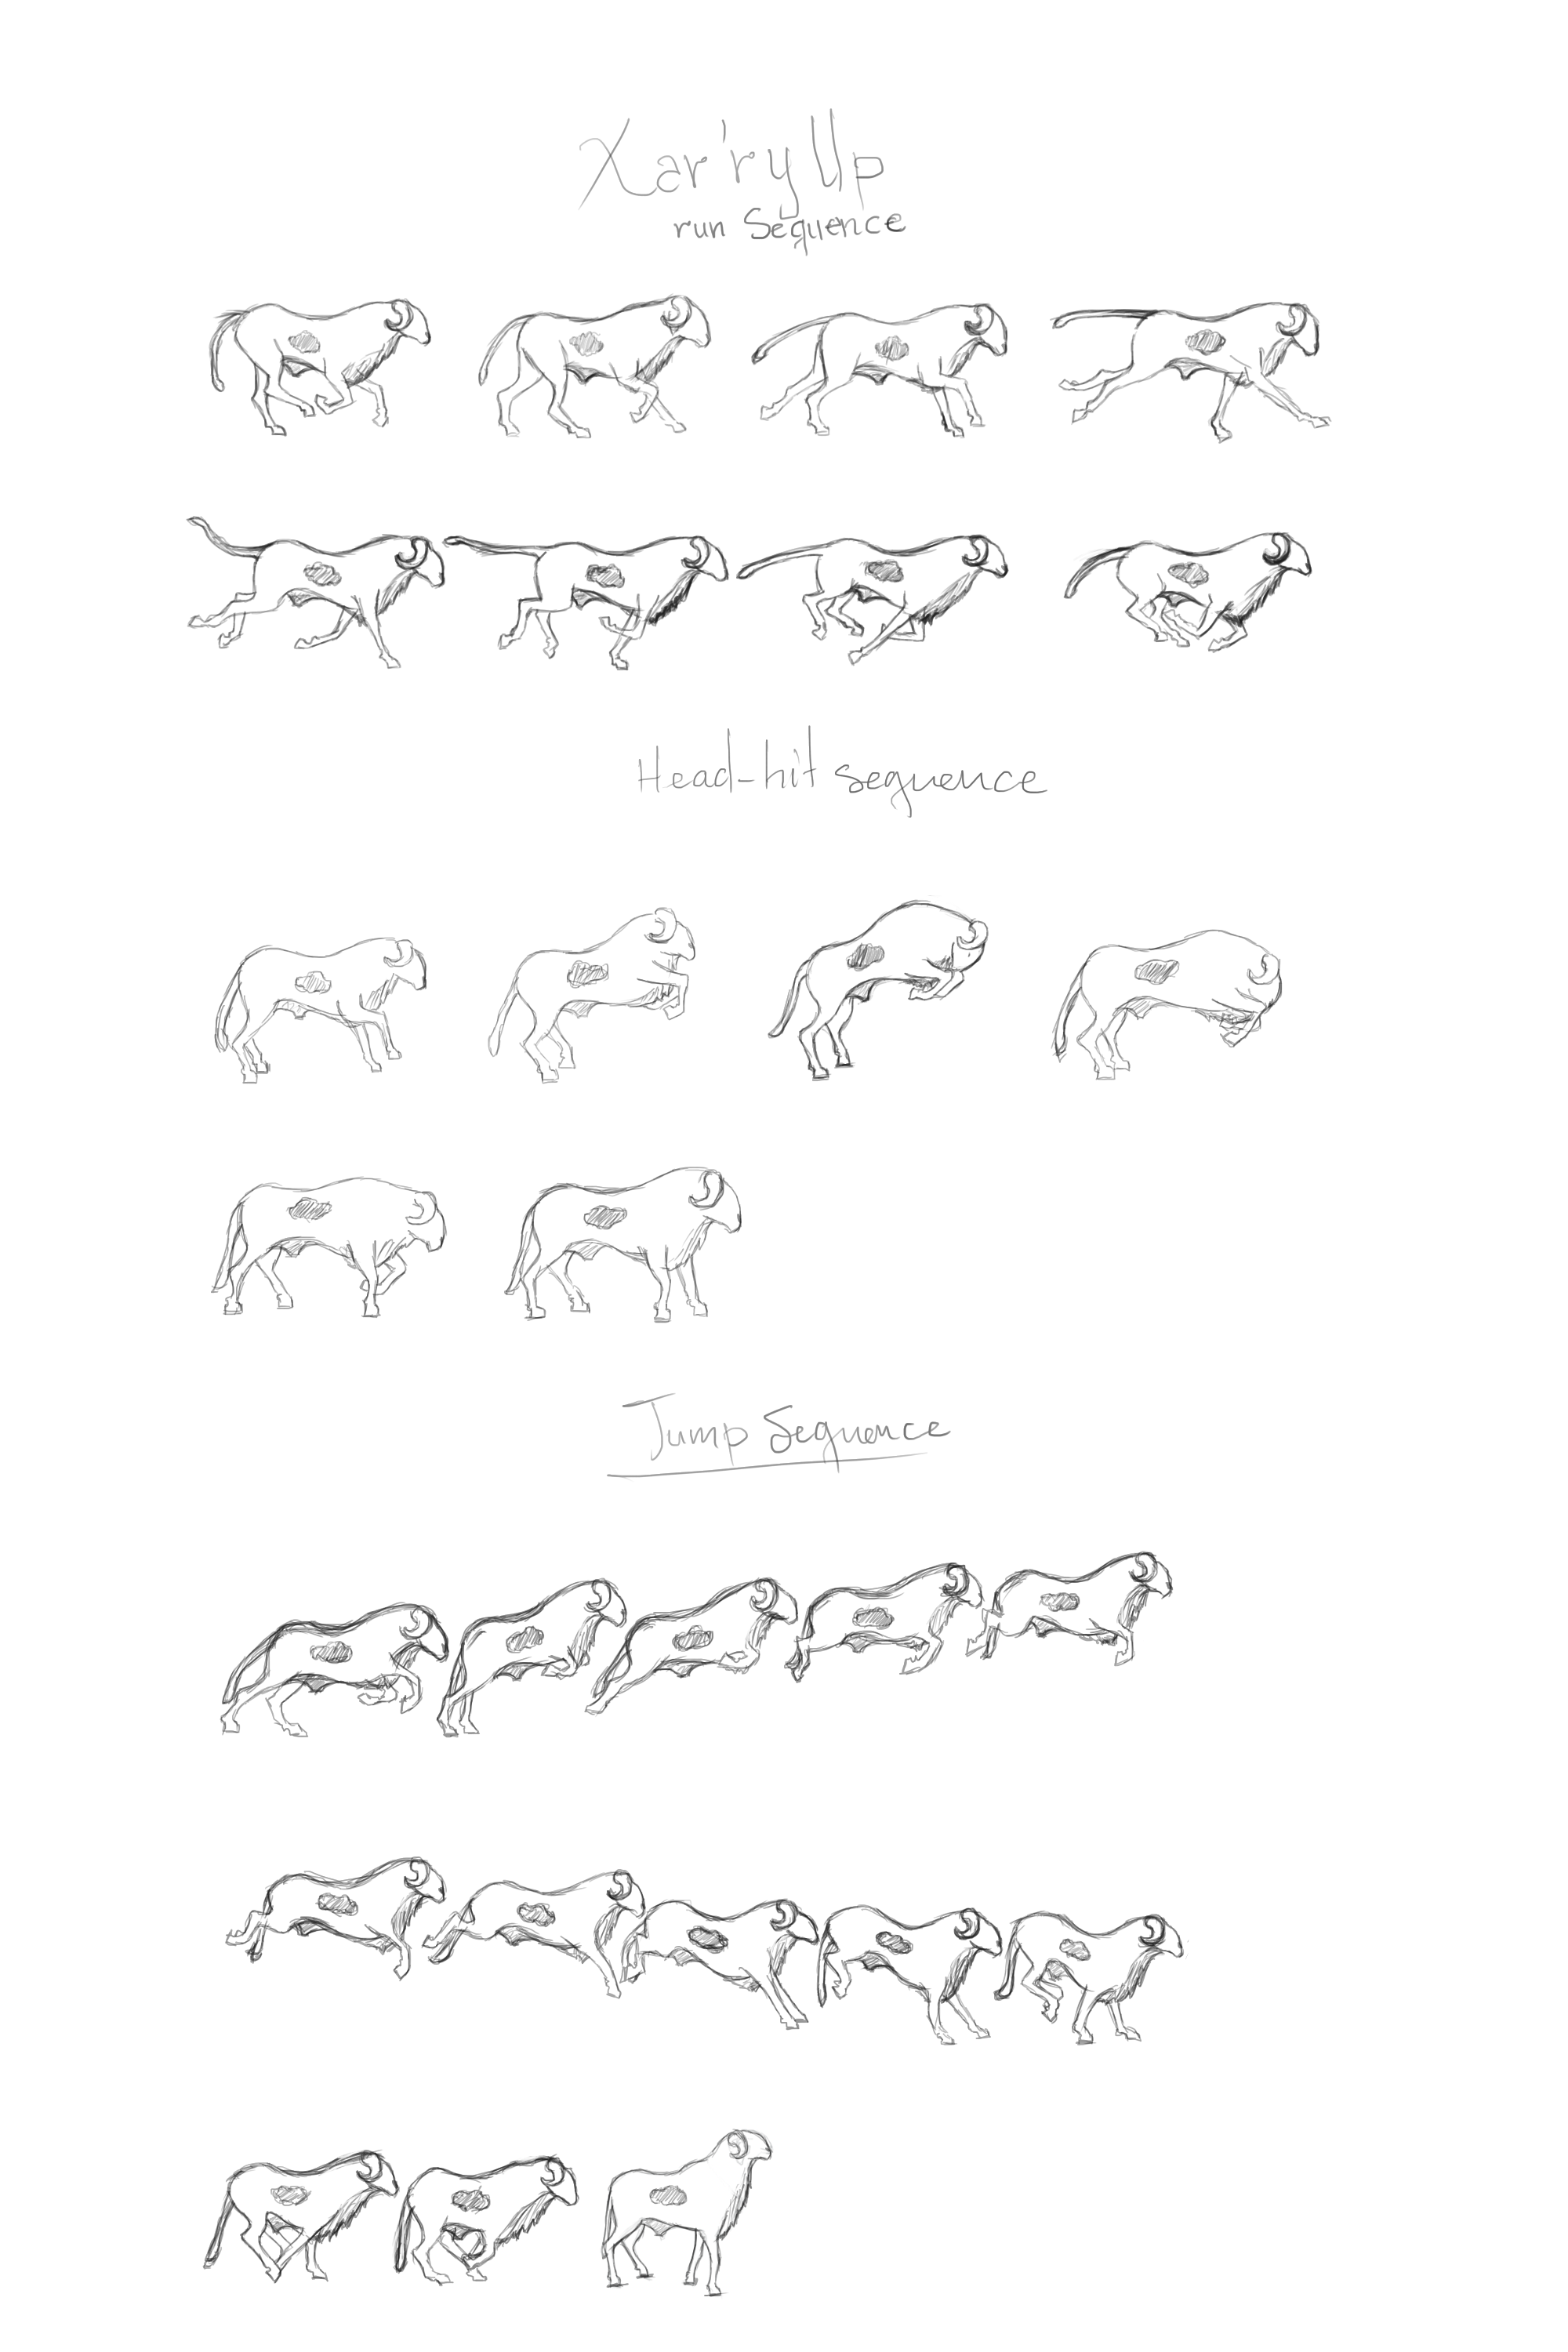 Xar'ry Up
run Sequence
Head-hit sequence
Jump Sequence